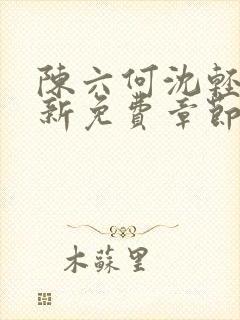 陳六何沈輕
新免費章節
木蘇里